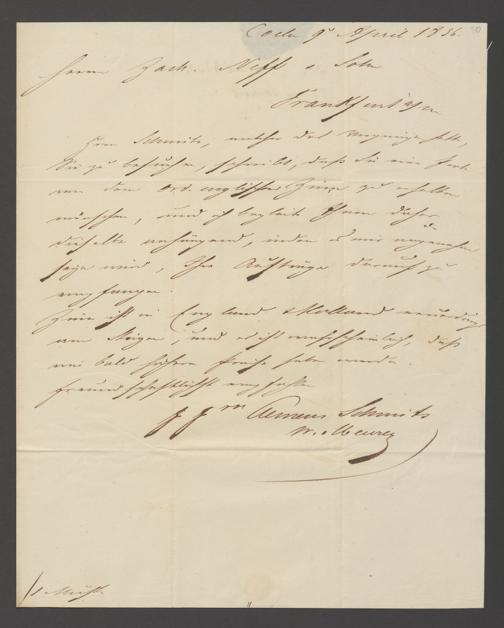 Coeln 9 April 1836.
Herrn Zach. Neff & Sohn
Frankfurt a/m
Herr Schmitz, welcher das Vergnügen hatte,
Sie zu besuchen, schreibt, daß Sie eine
von den ord. englischen Zinn zu erhalten
wünschen, und ich Ihnen daher
dieselbe anhängend, indem es mir angenehm
seyn wird, Ihre Aufträge darauf zu
empfangen.
Zinn ist in England & Holland neuerdings
am Steigen, und es ist wahrscheinlich, daß
wir bald höhere Preise haben werden.
Freundschaftlichst
Clemens Schmits
W. Meurer
1 Muster